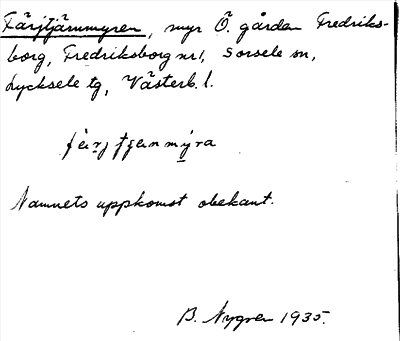 Färjtjärnmyren, myr Ö. gården Fredriks-
borg, Fredriksborg nr 1, Sorsele sn,
Lycksele tg, Västerb. l.
färj tjenmýra
Namnets uppkomst obekant.
B. Nygren 1935.